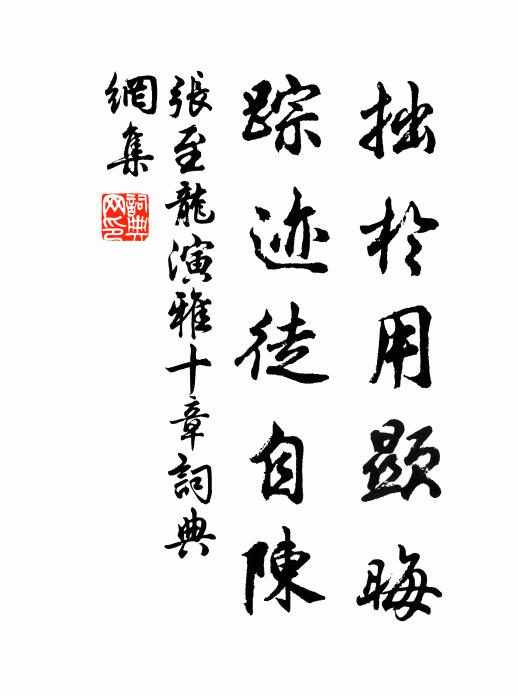 拙於用顯晦
踪迹徒自陳
張至龍演雅十章詞典
網集
詞典网印